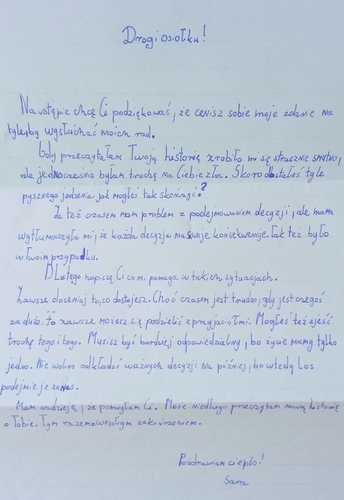 Drogi osiołku!
Na wstępie chcę Ci podziękować, że cenisz sobie moje zdanie na
tyle, by wysłuchać moich rad.
Gdy przeczytałam Twoją historię zrobiło mi się strasznie smutno,
ale jednocześnie byłam trochę na Ciebie zła. Skoro dostałeś tyle
pysznego jedzenia jak mogłeś tak skończyć?
Ja też czasem mam problem z podejmowaniem decyzji, ale mama
wytłumaczyła mi, że każda decyzja ma swoje konsekwencje. Tak też było
w Twoim przypadku.
Dlatego napiszę Ci co mi pomaga w takich sytuacjach.
Zawsze doceniaj to, co dostajesz. Choć czasem jest trudno, gdy jest czegoś
za dużo. To zawsze możesz się podzielić z przyjaciółmi. Mogłeś też zjeść
trochę tego i tego. Musisz być bardziej odpowiedzialny, bo życie mamy tylko
jedno. Nie wolno odkładać ważnych decyzji na później, bo wtedy los
podejmie je za nas.
Mam nadzieję, że pomogłam Ci. Może niedługo przeczytam nową historię
o Tobie. Tym razem z wesołym zakończeniem.
Pozdrawiam ciepło!
Sara